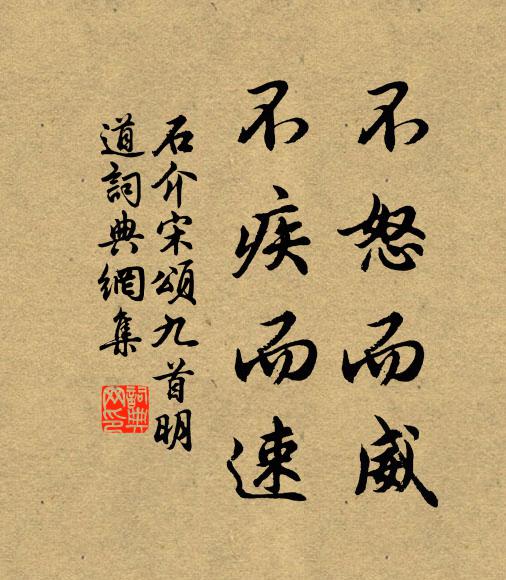 不怒而威
不疾而速
石介宋頌九首明
道詞典網集
詞典
网印